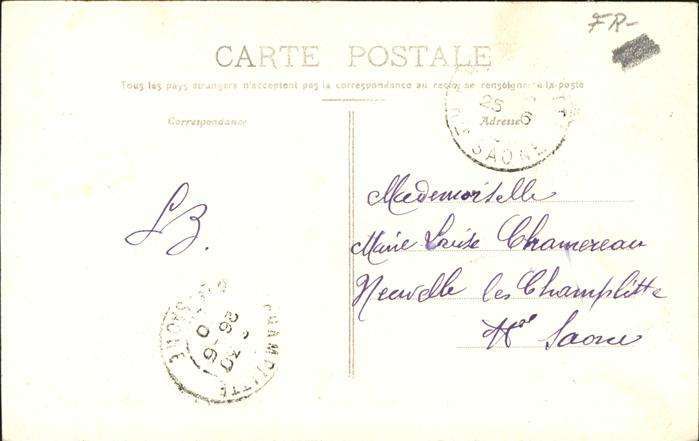 FR-
CARTE POSTALE
Tous les pays étrangers n'acceptent pas la correspondance au recto, se renseigner à la poste
Correspondance
Adresse
25
6
SAONE
LB.
Mademoiselle
Marie Louise Chamereau
Neuvelle les Champlitte
Hte Saone
CHAMPLITTE